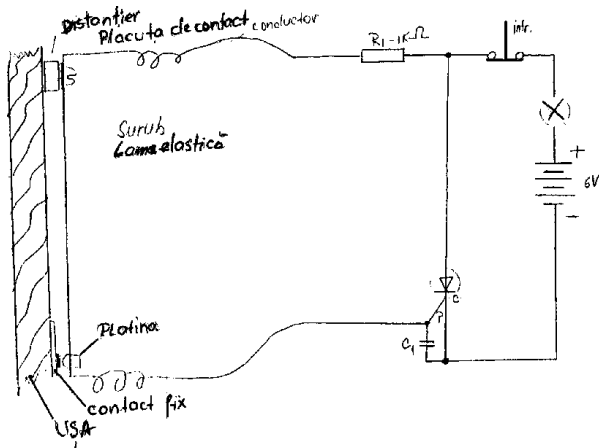 Distantier
Placuța de contact
conductor
R1-1K-Ω
intr.
S
Surub
Lama elastică
+
6V
-
C
P
C1
Platina
contact fix
USA